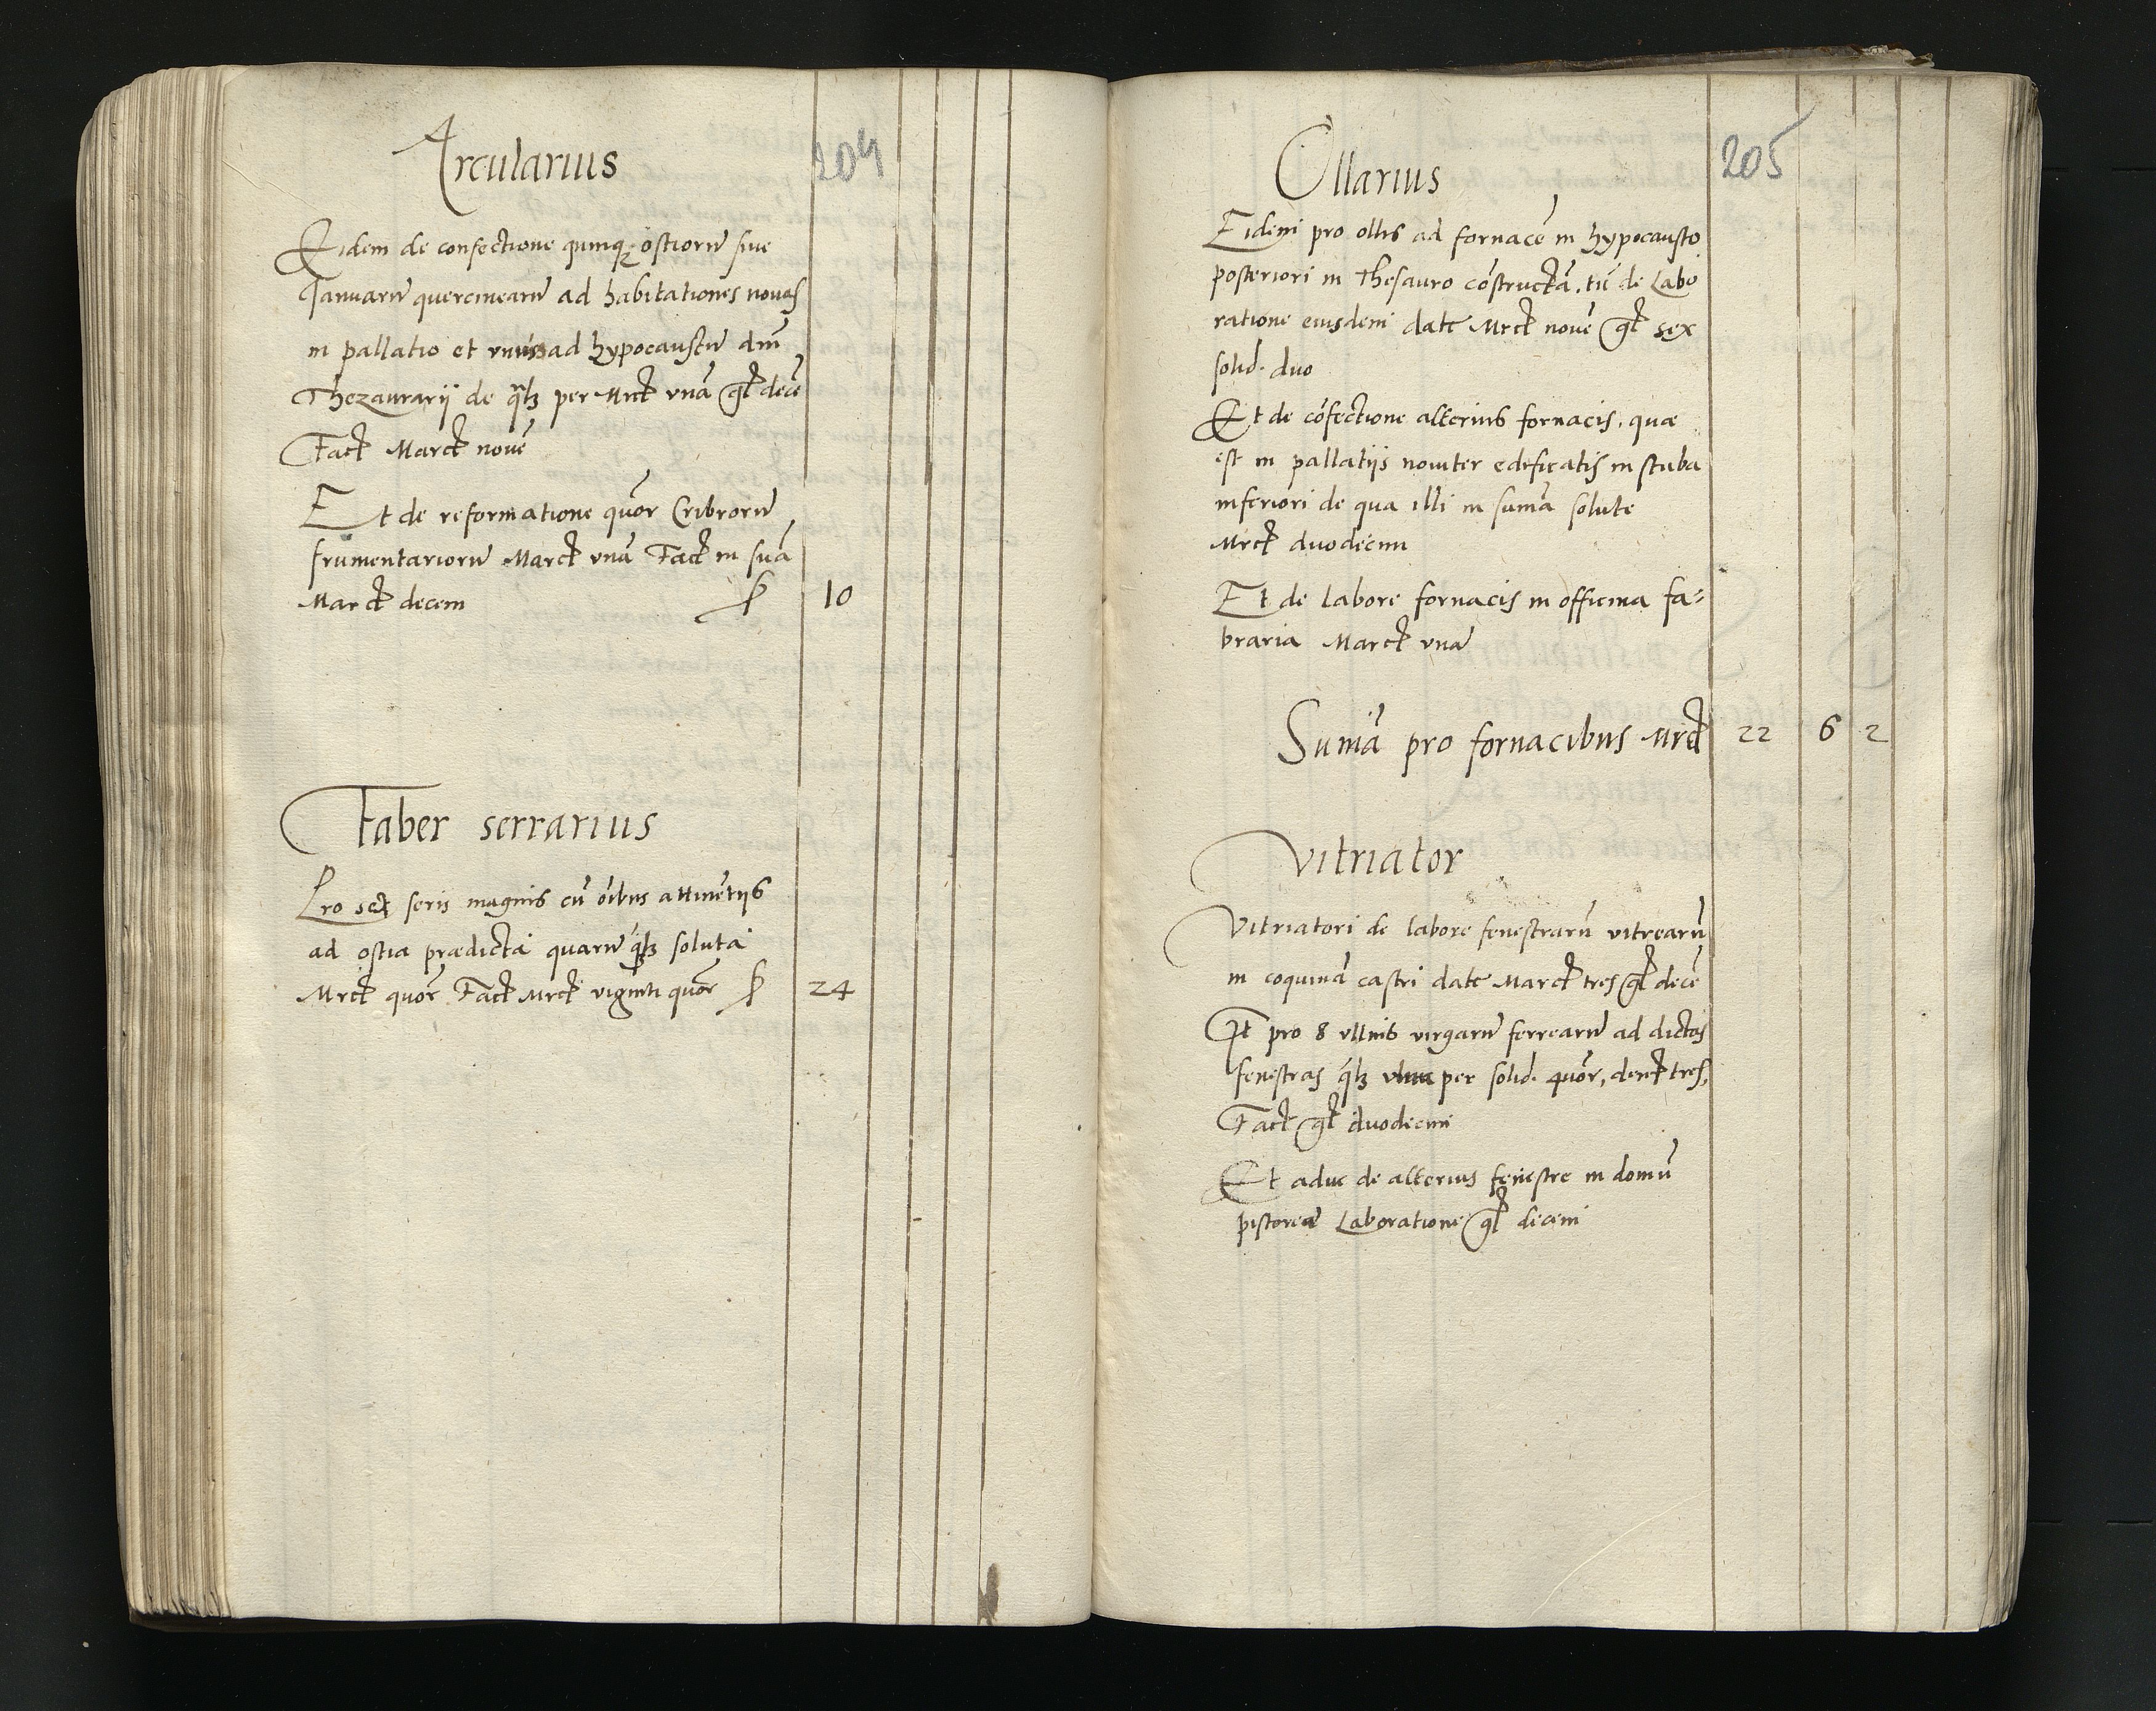 204
Arcularius
Eidem de confectione quinq; ostiorũ siue
Januarũ quercinearũ ad habitationes nouas
in pallatio et vnius ad hypocaustũ dm̃
Thezaurarij de qlb; per Mrc vnã gℓ decẽ
Fac̃ Marc̃ nouẽ
Et de reformatione quor Cribrorũ
frumentariorũ Marc̃ vnã Fac̃ in suã
Marc̃ decem 10
Faber serrarius
Pro sex seris magnis cũ oĩbus attinẽtijs
ad ostia prædicta quarũ qlb; soluta
Mrc̃ quor Fac̃ Mrc̃ viginti quor 24
205
Ollarius
Eidem pro ollis ad fornacẽ in hypocausto
posteriori in Thesauro cõstructã, tũ de Labo
ratione eiusdem date Mrc̃ nouẽ gℓ sex
solid. duo
Et de cõfectione alterius fornacis, quæ
est in pallatijs nouiter edificatis in stuba
inferiori de qua illi in sumã solute
Mrc̃ duodecim
Et de labore fornacis in officina fa-
braria Marc̃ vnã
Sumã pro fornacibus Mrc̃ 22 6 2
Vitriator
Vitriatori de labore fenestrarũ vitrearũ
in coquinã castri date Marc̃ tres gℓ decẽ
It pro 8 vllnis virgarũ ferrearũ ad dictas
fenestras qlb; vlna per solid. quor, denc̃ tres,
Fac̃ gℓ duodecim
Et aduc de alterius fenestre in domũ
pistoreã Laboratione gℓ decem